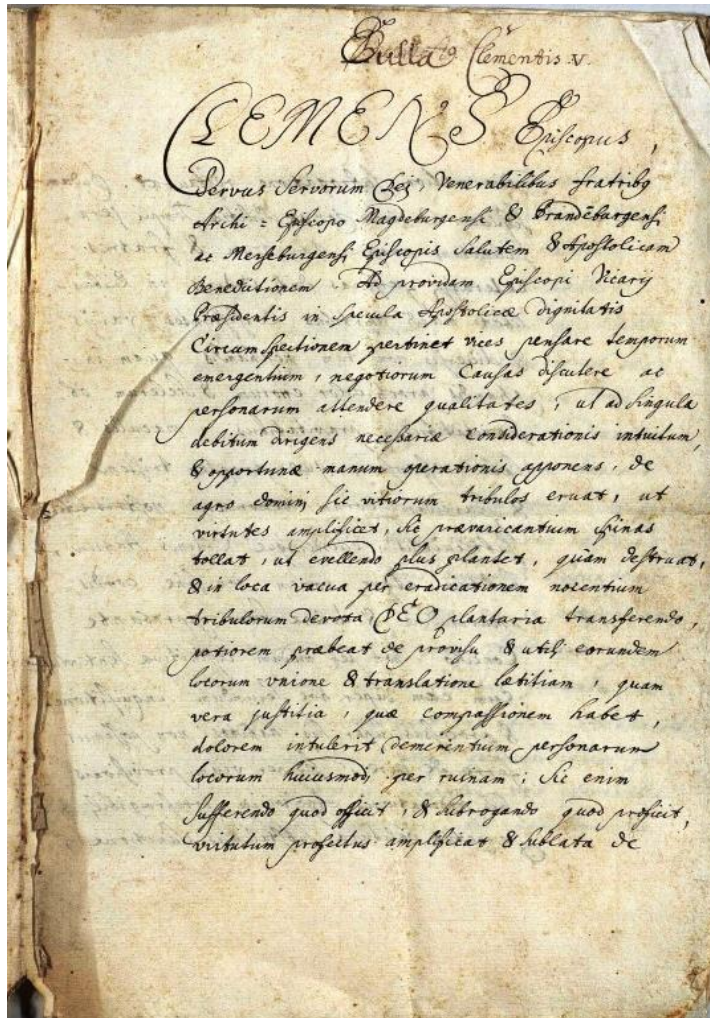 Bulla Clementis V.
CLEMENS Episcopus,
Servus Servorum Dei, Venerabilibus fratribq
Archi = Episcopo Magdeburgensi & Brandēburgensi
ac Merseburgensi Episcopis Salutem & Apostolicam
Benedictionem Ad providam Episcopi Vicarij
Præsidentis in specula Apostolicæ dignitatis
Circumspectionem pertinet vices pensare temporum
emergentium, negotiorum Causas discutere ac
personarum attendere qualitates, ut ad Singula
debitum dirigens necessariæ considerationis intuitum,
& opportunæ manum operationis apponens, de
agro domini sic vitiorum tribulos eruat, ut
virtutes amplificet, sic prævaricantium spinas
tollat, ut evellendo plus plantet, quam destruat,
& in loca vacua per eradicationem nocentium
tribulorum devota DEO plantaria transferendo,
potiorem præbeat de provisu & utili eorundem
locorum unione & translatione lætitiam, quam
vera justitia, quæ compassionem habet,
dolorem intulerit demerentium personarum
locorum huiusmodi per ruinam; Sic enim
sufferendo quod officit, & subrogando quod proficit,
virtutum profectus amplificat & sublata de